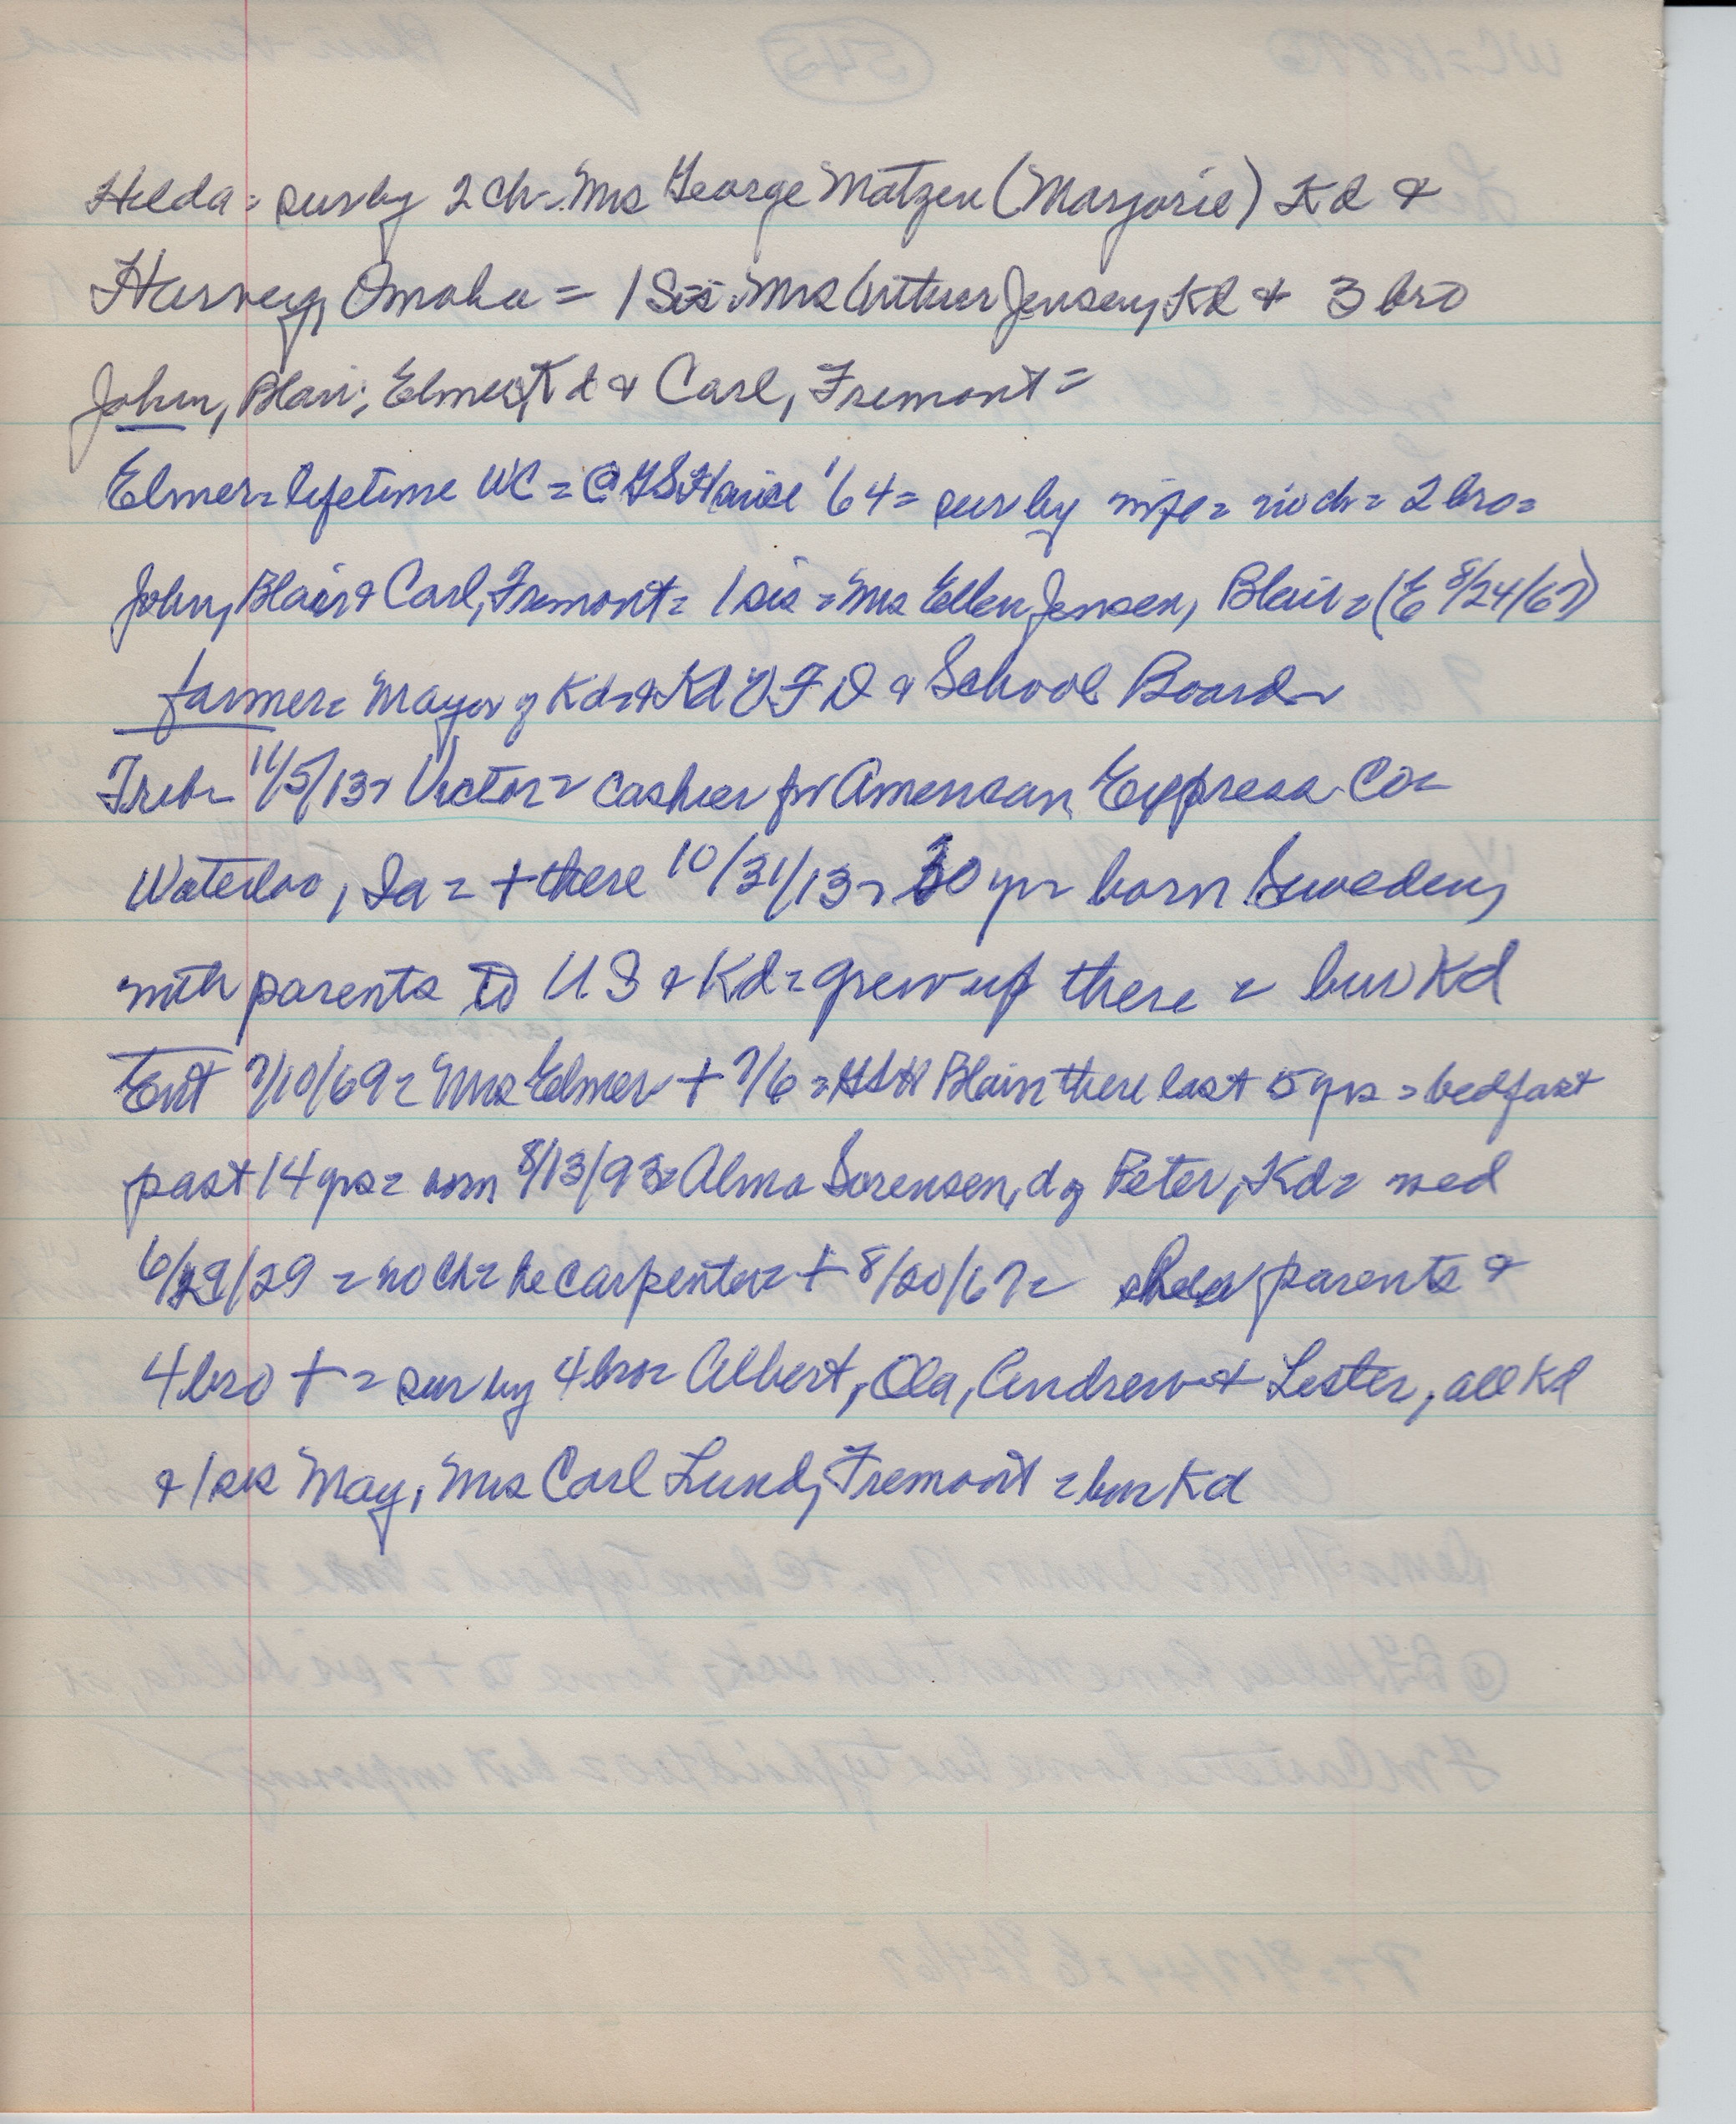 Hilda = sur by 2 ch - Mrs George Matzen (Marjorie) Kd &
Harvey, Omaha = 1 Sis - Mrs Arthur Jensen, Kd & 3 bro
John, Blair, Elmer, Kd & Carl, Fremont =
Elmer = lifetime WC = @ GS House 1/64 = sur by wife = no ch = 2 bro =
John, Blair & Carl, Fremont = 1 sis = Mrs Ellen Jensen, Blair = (E 8/24/67)
farmer = Mayor of Kd = & Kd VFD & School Board =
Trib = 11/5/13 = Victor = cashier for American Express Co =
Waterloo, Ia = + there 10/31/13 = 30 yr = born Sweden,
with parents to US & Kd = grew up there = bur Kd
Ent 7/10/69 = Mrs Elmer + 7/6 = GSH Blair = there last 5 yrs = bedfast
past 14 yrs = born 8/13/93 = Alma Sorensen, d of Peter, Kd = wed
6/29/29 = no ch = he carpenter = + 8/20/67 = parents &
4 bro + = sur by 4 bro = Albert, Ola, Andrew & Lester, all Kd
& 1 sis May, Mrs Carl Lund, Fremont = bur Kd